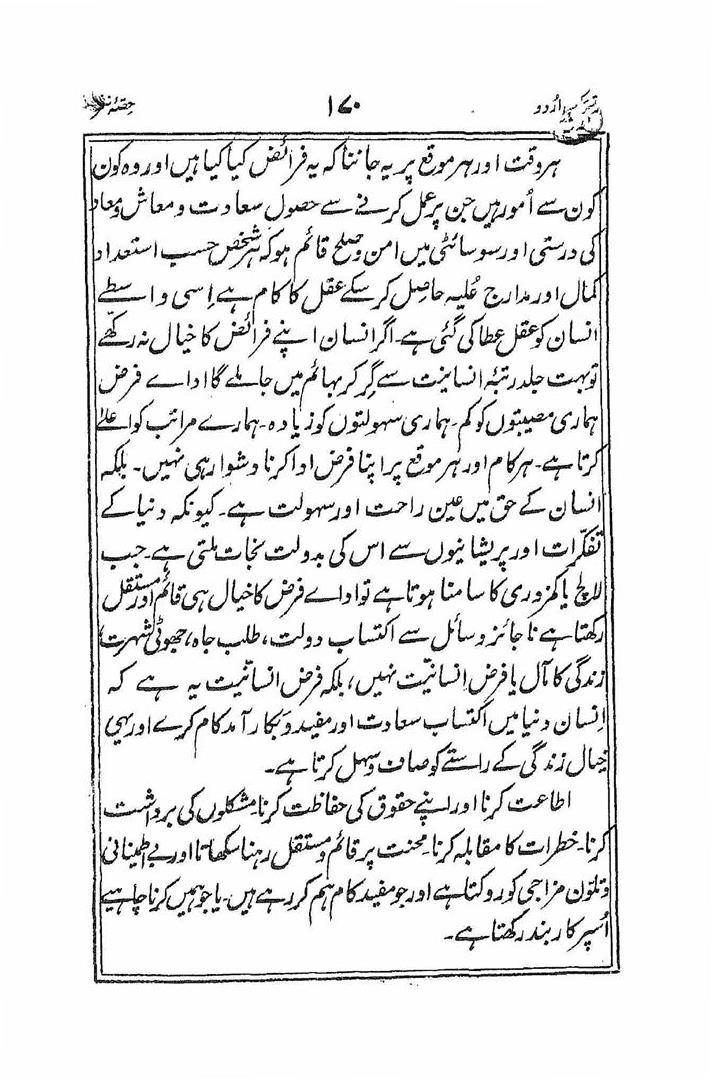 اُردو ۱۷۰ حصّۂ
ہر وقت اور ہر موقع پر یہ جاننا کہ یہ فرائض کیا کیا ہیں اور وہ کون
کون سے اُمور ہیں جن پر عمل کرنے سے حصول سعادت و معاش و معاد
کی درستی اور سوسائٹی میں امن و صلح قائم ہو کہ ہر شخص حسب استعداد
کمال اور مدارج عُلیہ حاصل کر سکے عقل کا کام ہے اِسی واسطے
انسان کو عقل عطا کی گئی ہے۔ اگر انسان اپنے فرائض کا خیال نہ رکھے
تو بہت جلد رتبۂ انسانیت سے گِر کر بہائم میں جا ملے گا اداے فرض
ہماری مصیبتوں کو کم۔ ہماری سہولتوں کو زیادہ۔ ہمارے مراتب کو اعلےٰ
کرتا ہے۔ ہر کام اور ہر موقع پر اپنا فرض ادا کرنا دشوار ہی نہیں۔ بلکہ
انسان کے حق میں عین راحت اور سہولت ہے۔ کیونکہ دنیا کے
تفکّرات اور پریشانیوں سے اس کی بدولت نجات ملتی ہے۔ جب
لالچ یا کمزوری کا سامنا ہوتا ہے تو اداے فرض کا خیال ہی قائم اور مستقل
رکھتا ہے ناجائز وسائل سے اکتساب دولت، طلب جاہ، جھوٹی شہرت،
زندگی کا مآل یا فرض اِنسانیّت نہیں، بلکہ فرض انسانیّت یہ ہے کہ
اِنسان دنیا میں اکتساب سعادت اور مفید و بکار آمد کام کرے اور یہی
خیال زندگی کے راستے کو صاف و سہل کرتا ہے۔
اطاعت کرنا اور اپنے حقوق کی حفاظت کرنا۔ مشکلوں کی برداشت
کرنا۔ خطرات کا مقابلہ کرنا۔ محنت پر قائم و مستقل رہنا سکھاتا اور بے اطمینانی
و تلوّن مزاجی کو روکتا ہے اور جو مفید کام ہم کر رہے ہیں۔ یا جو ہمیں کرنا چاہیے
اُسپر کاربند رکھتا ہے۔